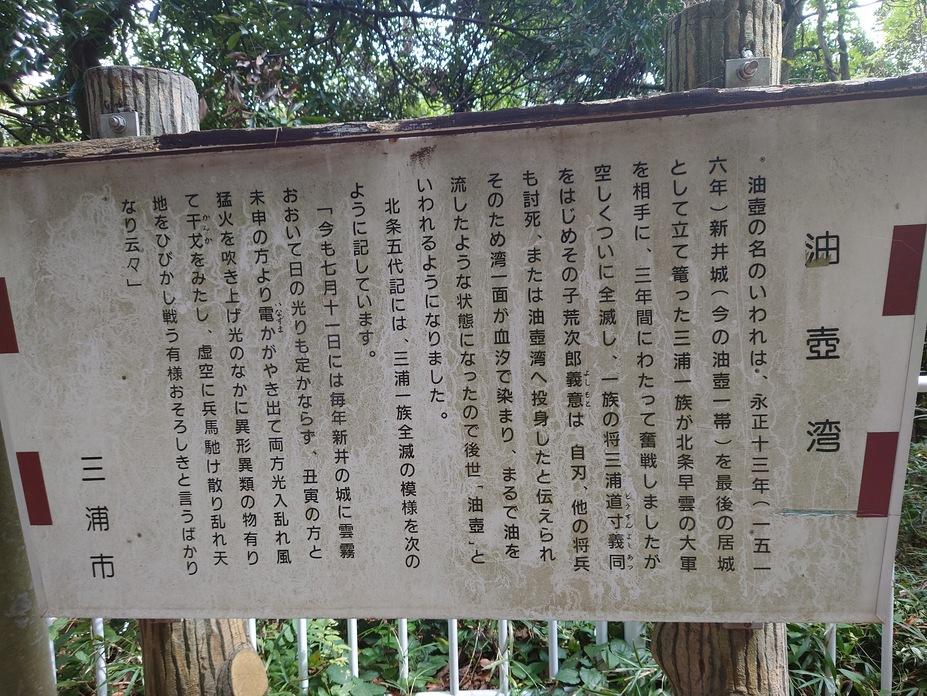 油壺湾
油壺の名のいわれは、永正十三年(一五一
六年)新井城(今の油壺一帯)を最後の居城
として立て篭った三浦一族が北条早雲の大軍
を相手に、三年間にわたって奮戦しましたが
空しくついに全滅し、一族の将三浦道寸義同
をはじめその子荒次郎義意は 自刃、他の将兵
も討死、または油壺湾へ投身したと伝えられ
そのため湾一面が血汐で染まり、まるで油を
流したような状態になったので後世「油壺」と
いわれるようになりました。
北条五代記には、三浦一族全滅の模様を次の
ように記しています。
「今も七月十一日には毎年新井の城に雲霧
おおいて日の光りも定かならず、丑寅の方と
未申の方より電かがやき出て両方光入乱れ風
猛火を吹き上げ光のなかに異形異類の物有り
て干戈をみたし、虚空に兵馬馳け散り乱れ天
地をひびかし戦う有様おそろしきと言うばかり
なり云々」
三浦市